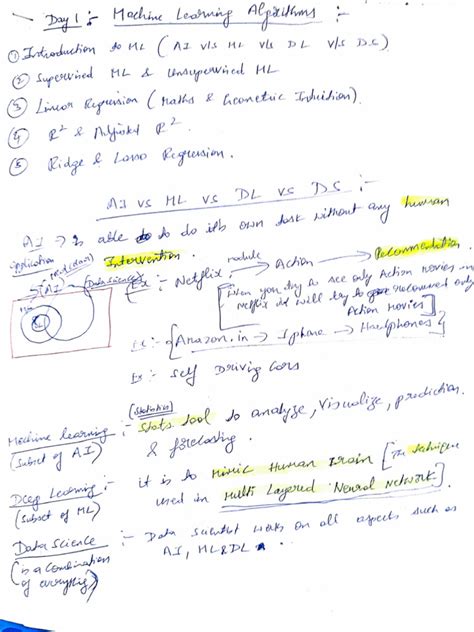 Day 1 :- Machine Learning Algorithms :-
① Introduction to ML ( AI v/s ML v/s DL v/s D.S )
② Supervised ML & Unsupervised ML
③ Linear Regression ( Maths & Geometric Intuition ).
④ R² & Adjusted R².
⑤ Ridge & Lasso Regression.
AI VS ML VS DL VS DS :-
AI → is able to do its own task without any human
Intervention.
application
(AI)
(Data Science)
Ex :- Netflix → Action → Recommendation.
module
[when you try to see only Action movies on
Netflix it will try to recommend only
Action movies]
Ex :- {Amazon.in → Iphone → Headphones}
Ex :- Self Driving Cars
Machine learning :- (Statistics) Stats tool to analyze, visualize, prediction.
(Subset of AI) & forecasting.
Deep Learning :- it is to Mimic Human Brain [The technique
(Subset of ML) used in Multi Layered Neural Network].
Data Science :- Data Scientist works on all aspects such as
(is a Combination AI, ML & DL.
of everything)